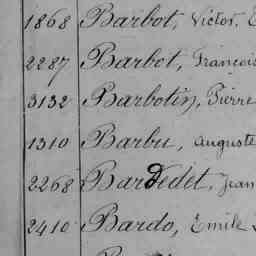 1868 Barbot, Victor, E
2287 Barbot, François
3132 Barbotin, Pierre
1310 Barbu, Auguste
2268 Bardedet, Jean
2410 Bardo, Emile